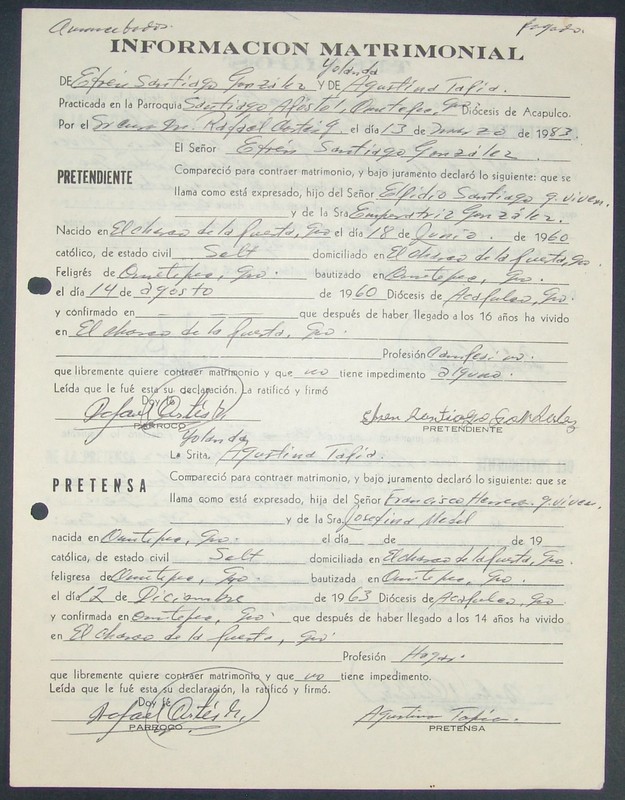 Amonestados. Pagado.
INFORMACION MATRIMONIAL
Yolanda
DE Efrén Santiago González Y DE Agustina Tapia.
Practicada en la Parroquia Santiago Apóstol, Ometepec, Gro. Diócesis de Acapulco.
Por el Sr. Cura Dn. Rafael Cortés G. el día 13 de marzo de 1983.
El Señor Efrén Santiago González.
PRETENDIENTE
Compareció para contraer matrimonio, y bajo juramento declaró lo siguiente: que se
llama como está expresado, hijo del Señor Elfidio Santiago q. viven.
y de la Sra. Emperatriz González.
Nacido en El charco de la puerta, Gro el día 18 de Junio. de 1960
católico, de estado civil Solt domiciliado en El charco de la puerta, Gro.
Feligrés de Ometepec, Gro. bautizado en Ometepec, Gro.
el día 14 de agosto de 1960 Diócesis de Acapulco, Gro.
y confirmado en que después de haber llegado a los 16 años ha vivido
en El charco de la puerta, Gro.
Profesión Campesino.
que libremente quiere contraer matrimonio y que no tiene impedimento alguno.
Leída que le fué esta su declaración. La ratificó y firmó
Doy fé
Rafael Cortés G. Efren Santiago Gonzalez
PARROCO PRETENDIENTE
Yolanda
La Srita. Agustina Tapia.
PRETENSA
Compareció para contraer matrimonio, y bajo juramento declaró lo siguiente: que se
llama como está expresado, hija del Señor Francisco Herrera q. viven.
y de la Sra. Josefina
nacida en Ometepec, Gro. el día de de 19
católica, de estado civil Solt domiciliada en El charco de la puerta, Gro.
feligresa de Ometepec, Gro. bautizada en Ometepec, Gro.
el día 12 de Diciembre de 1963 Diócesis de Acapulco, Gro
y confirmada en Ometepec, Gro. que después de haber llegado a los 14 años ha vivido
en El charco de la puerta, Gro.
Profesión Hogar.
que libremente quiere contraer matrimonio y que no tiene impedimento.
Leída que le fué esta su declaración, la ratificó y firmó.
Doy fé
Rafael Cortés G. Agustina Tapia.
PARROCO PRETENSA